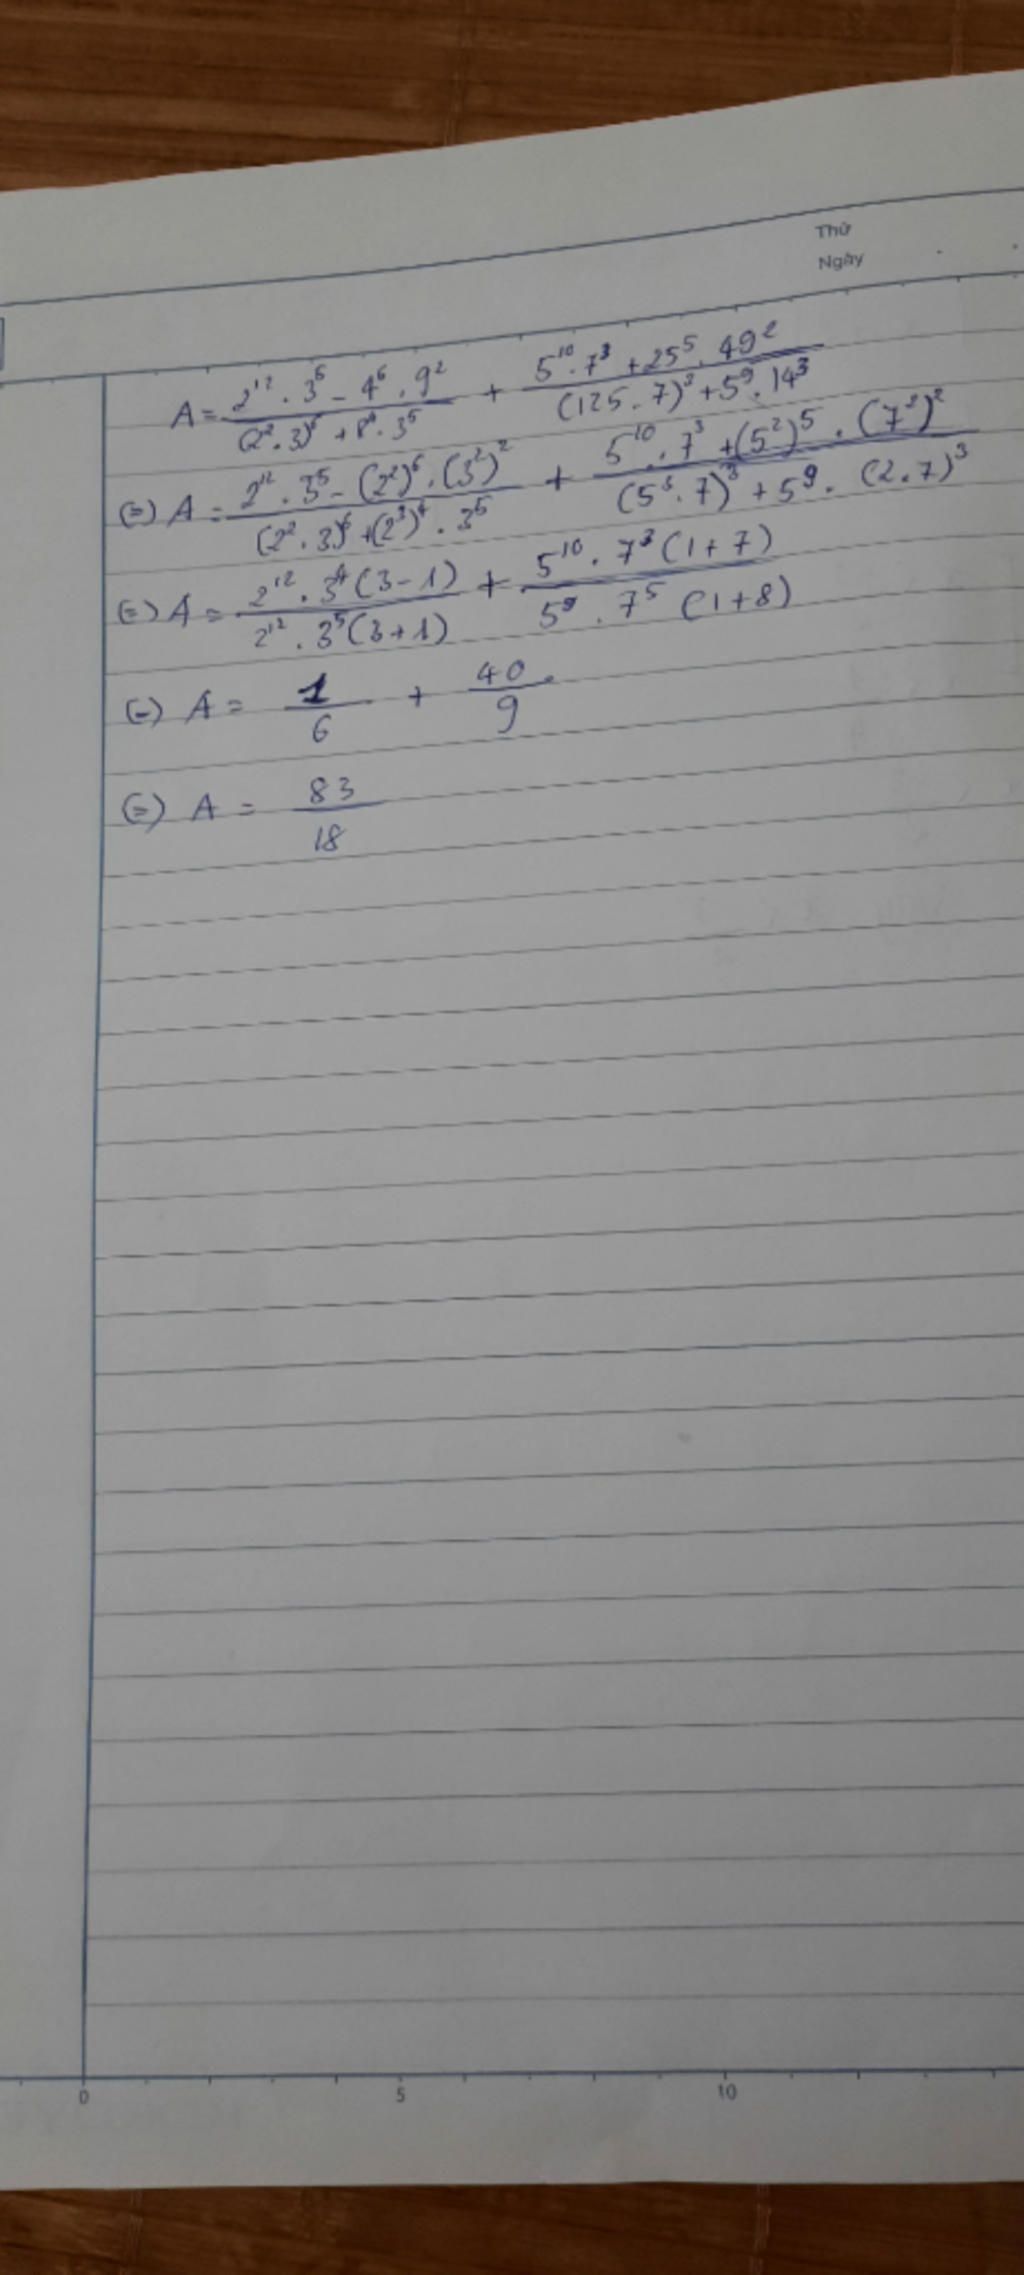 Thứ
Ngày
A = (2¹² . 3⁵ - 4⁶ . 9²)/((2² . 3)⁶ + 8⁴ . 3⁵) + (5¹⁰ . 7³ + 25⁵ . 49²)/((125 . 7)³ + 5⁹ . 14³)
(=) A = (2¹² . 3⁵ - (2²)⁶ . (3²)²)/((2² . 3)⁶ + (2³)⁴ . 3⁵) + (5¹⁰ . 7³ + (5²)⁵ . (7²)²)/((5³ . 7)³ + 5⁹ . (2 . 7)³)
(=) A = (2¹² . 3⁴ (3 - 1))/(2¹² . 3⁵ (3 + 1)) + (5¹⁰ . 7³ (1 + 7))/(5⁹ . 7⁵ (1 + 8))
(=) A = 1/6 + 40/9
(=) A = 83/18
0 5 10